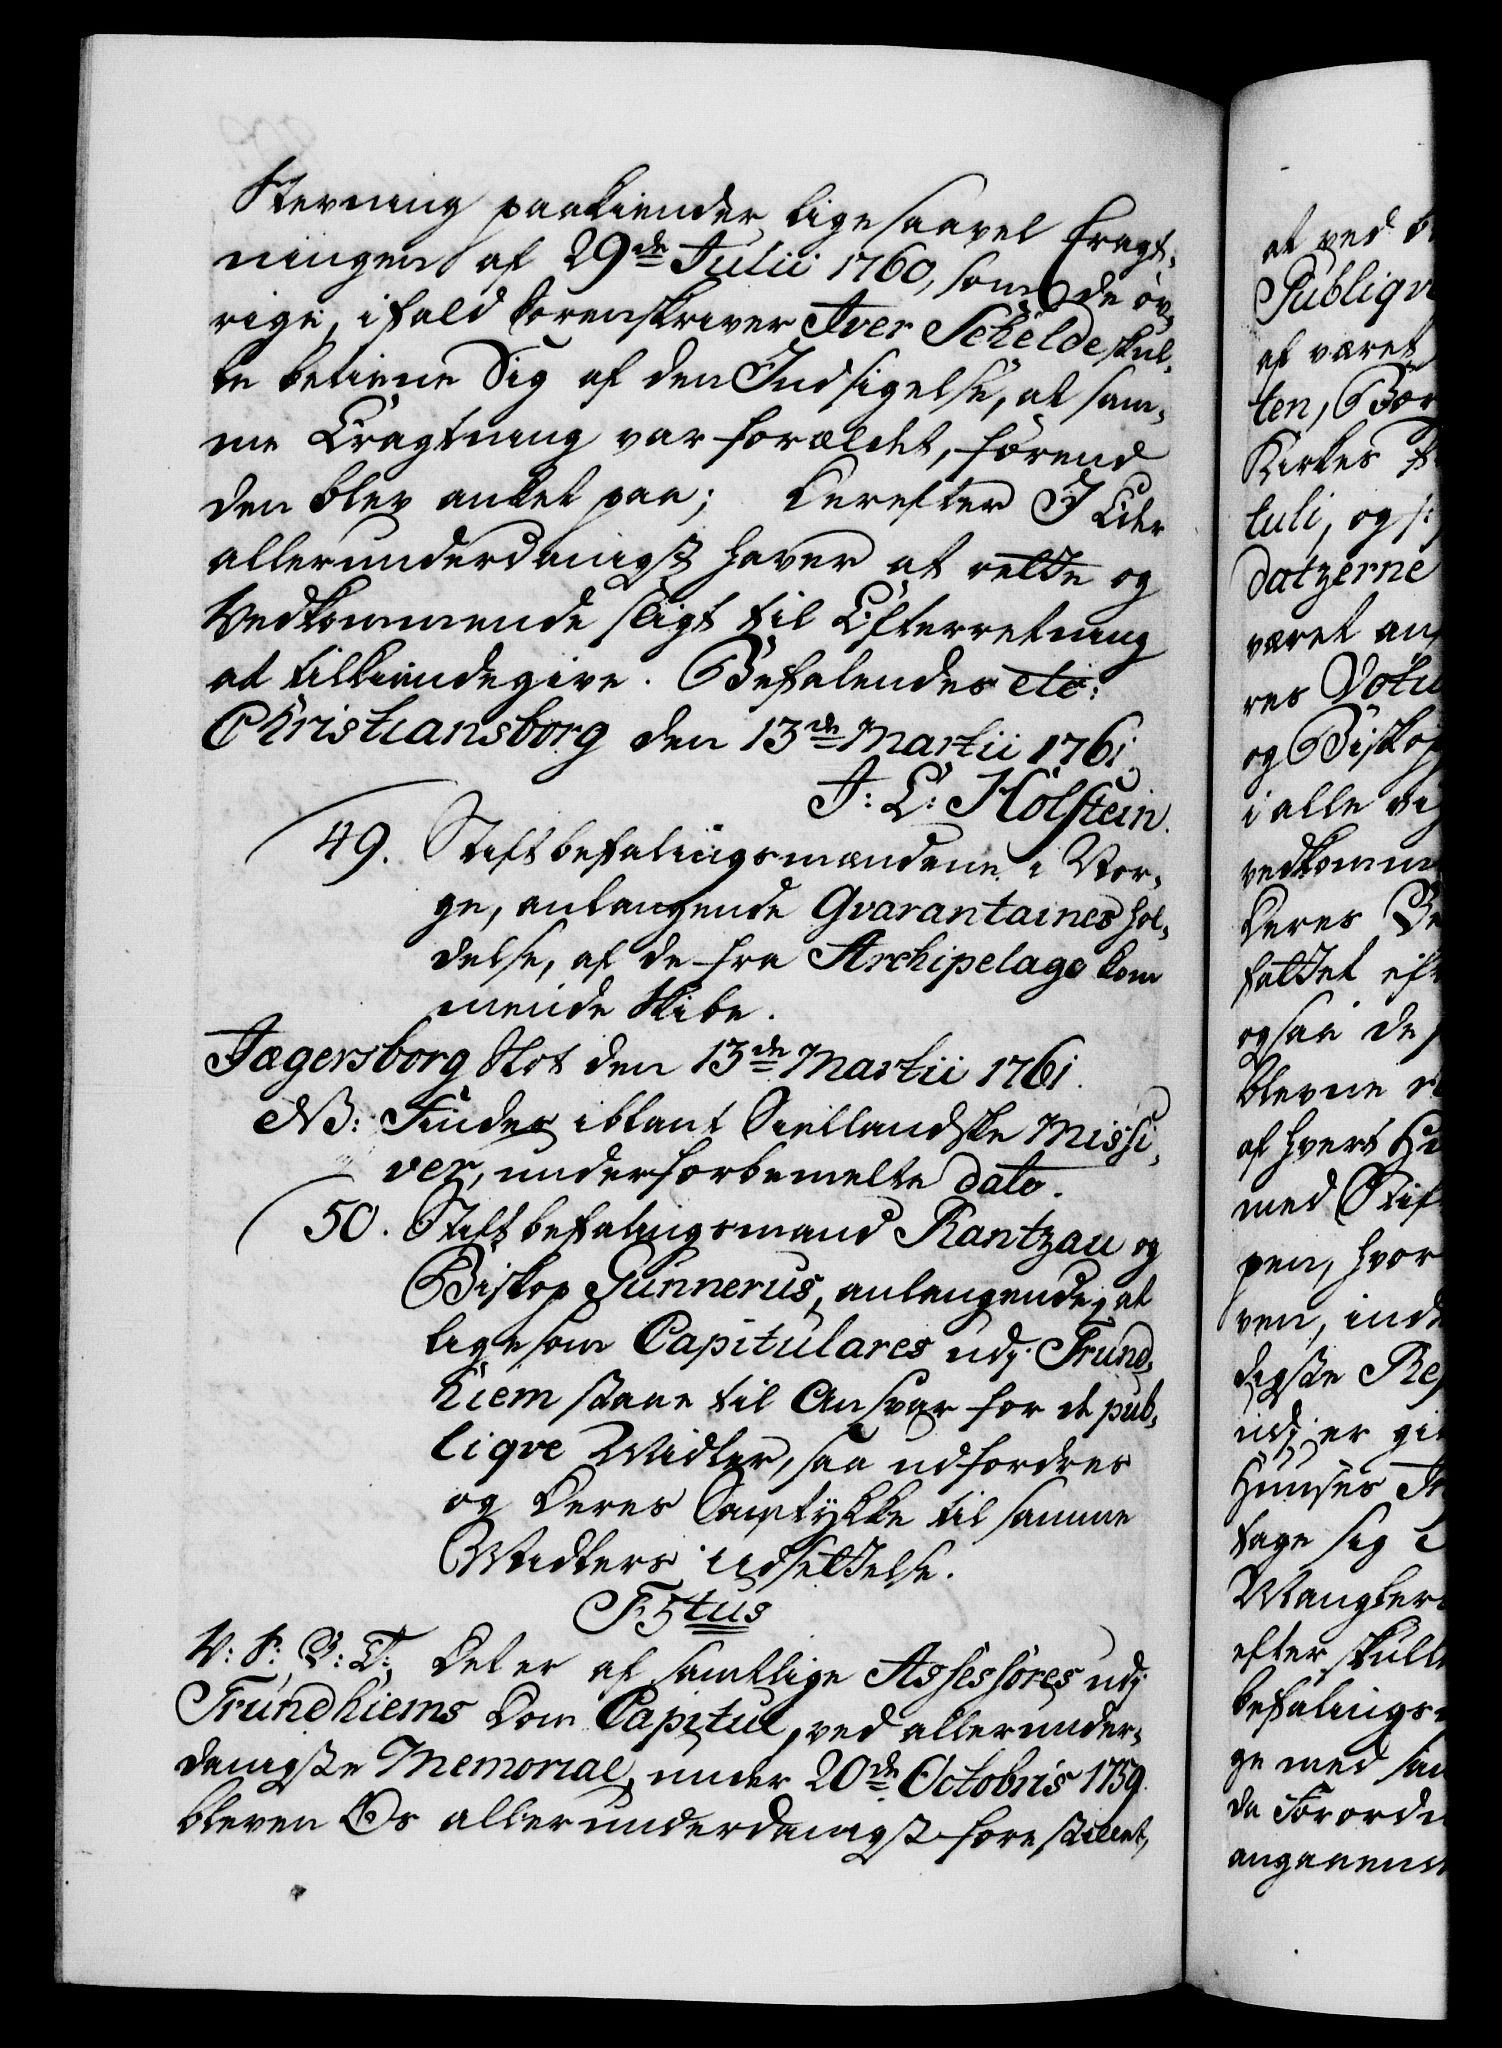 Stevning paakiender, lige saavel Eragt-
ningen af 29de Julii 1760, som de øv-
rige, ifald Sorenskriver Iver Schelde skul-
te betiene Sig af den Indsigelse, at sam-
me Eragtning var forældet, førend
den blev anket paa; Derefter I Eder
allerunderdanigst haver at rette og
Vedkommende sligt til Efterretning
at tilkiendegive. Befalendes etc:
Christiansborg den 13de Martii 1761.
J: L: Holstein.
49. Stiftbefalingsmændene i Nor-
ge, anlangende Qvarantaines Hol-
delse, af de fra Archipelago kom
mende Skibe.
Jægersborg Slot den 13de Martii 1761.
NB: Findes iblant Siellandske Missi-
ver, under forbemelte dato.
50. Stiftbefalingsmand Rantzau og
Biskop Gunnerus, anlangende, at
ligesom Capitulares udj Trund-
hiem staae til Ansvar for de pub-
liqve Midler, saa udfordres
og Deres Samtykke til samme
Midlers udsættelse.
F5tus
V: S: G: T: Det er af samtlige Assessores udj
Trundhiems Dom Capitul, ved allerunder-
danigste Memorial, under 20de Octobris 1759.
bleven Os allerunderdanigst forestillet,
at ved
Publiqv
af været
ten, Bør
Kirkes
tuli, og
datzerne
været an
res Votu
og Biskop
i alle
vedkomm
Deres
fattet
ogsaa de
blevne
af hvert
med Stif
pen, hvor
ven, ind
digste Re
udj er gi
Huuses
tage sig
Mangler
efter skull
befalings
ge med
da Forord
angaaend